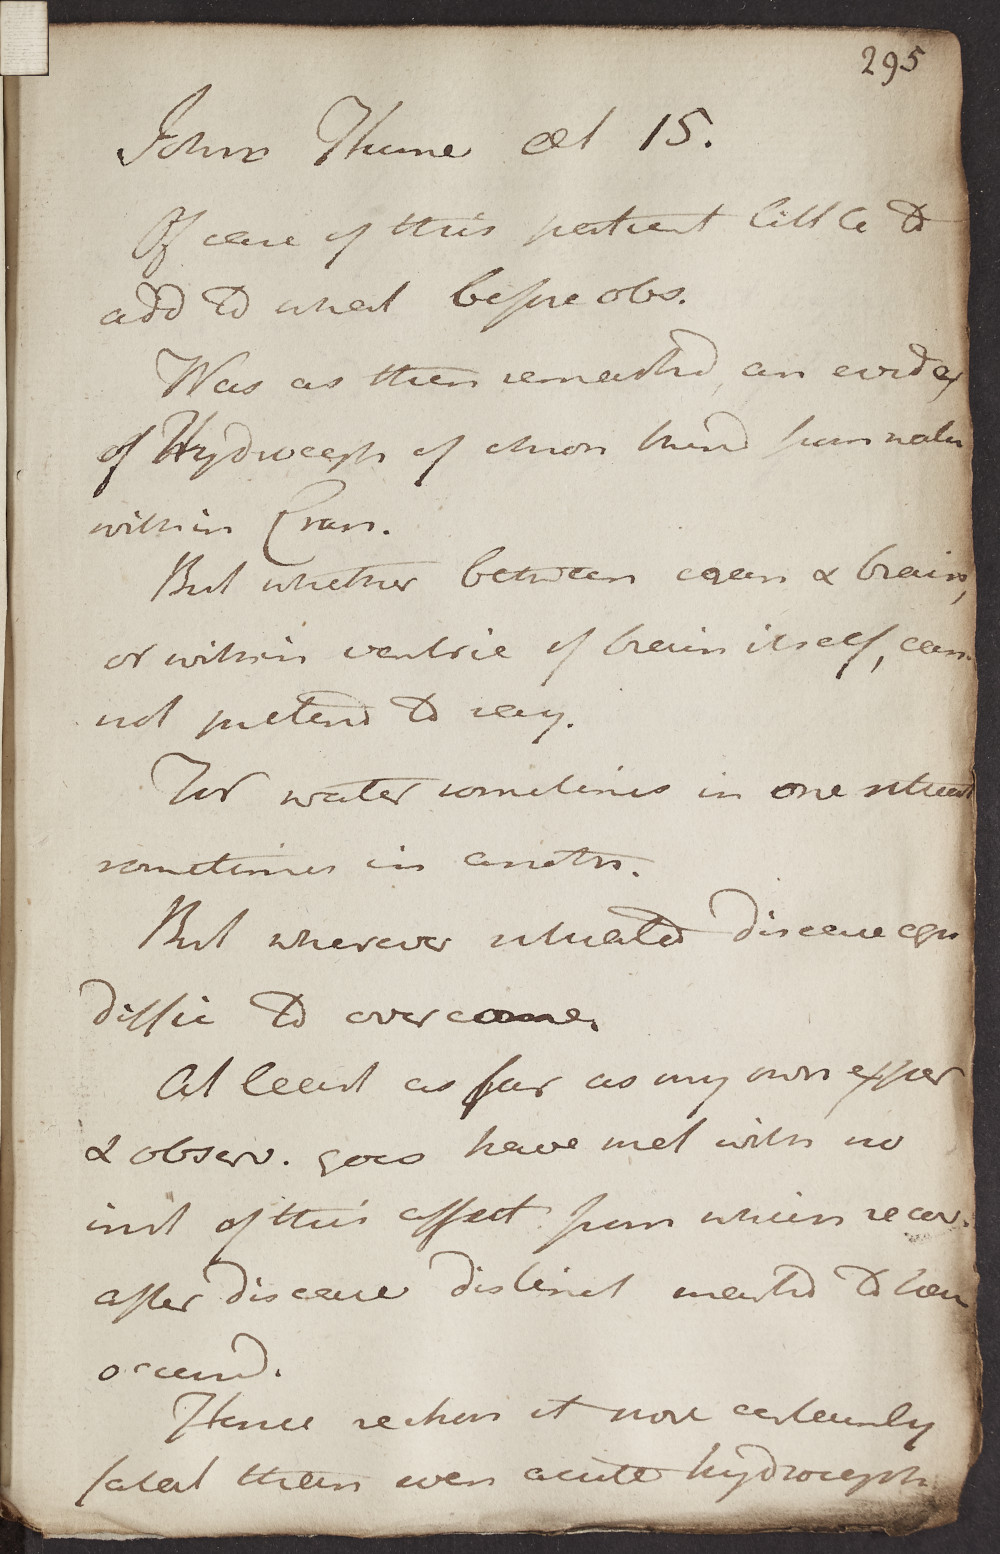 295
John Hume aet 15.
Of case of this patient little to
add to what before obs.
Was as then remarkd, an evid ex
of Hydroceph of chron kind from water
within Cran.
But whether between cran & brain,
or within ventric of brain itself, can
not pretend to say.
For water sometimes in one situat
sometimes in anothr.
But wherever situated disease
diffic to overcome.
At least as far as my own exper
& observ. goes have met with no
inst of this affect. from which recov.
after disease distinct markd to have
occurrd.
Hence reckon it more certainly
fatal than even acute hydroceph